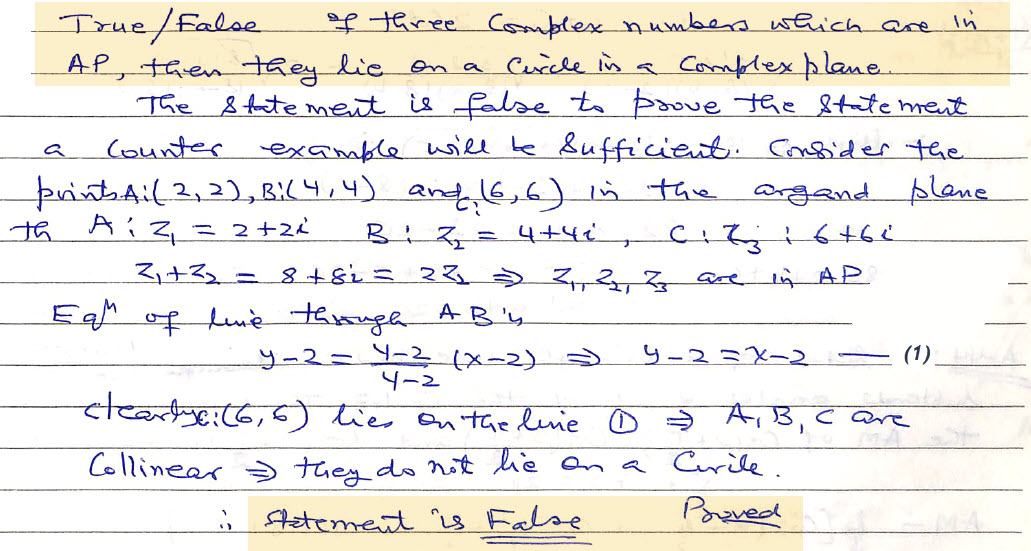 True/False If three Complex numbers which are in
AP, then they lie on a Circle in a Complex plane.
The Statement is false to prove the Statement
a Counter example will be Sufficient. Consider the
points A:(2,2), B:(4,4) and C:(6,6) in the argand plane
th A : Z₁ = 2+2i B : Z₂ = 4+4i, C : Z₃ : 6+6i
Z₁+Z₂ = 8+8i = 2Z₂ ⇒ Z₁, Z₂, Z₃ are in AP
Eqⁿ of line through AB is
y-2 = \frac{4-2}{4-2} (x-2) ⇒ y-2 = x-2 — (1)
clearly C:(6,6) lies on the line ① ⇒ A, B, C are
Collinear ⇒ they do not lie on a Circle.
∴ Statement is False Proved